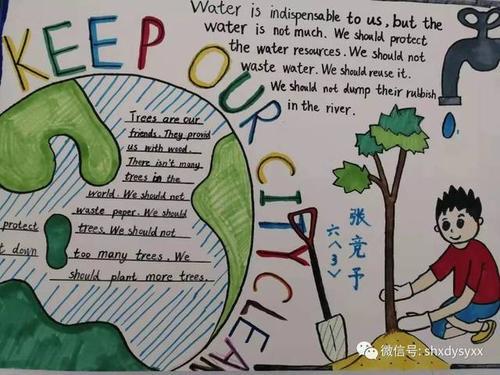 KEEP OUR CITY CLEAN
Water is indispensable to us, but the
water is not much. We should protect
the water resources. We should not
waste water. We should reuse it.
We should not dump their rubbish
in the river.
Trees are our
friends. They provid
us with wood.
There isn't many
trees in the
world. We should not
waste paper. We should
protect trees. We should not
t down too many trees. We
should plant more trees.
张竞予
六（3）
微信号: shxdysyxx